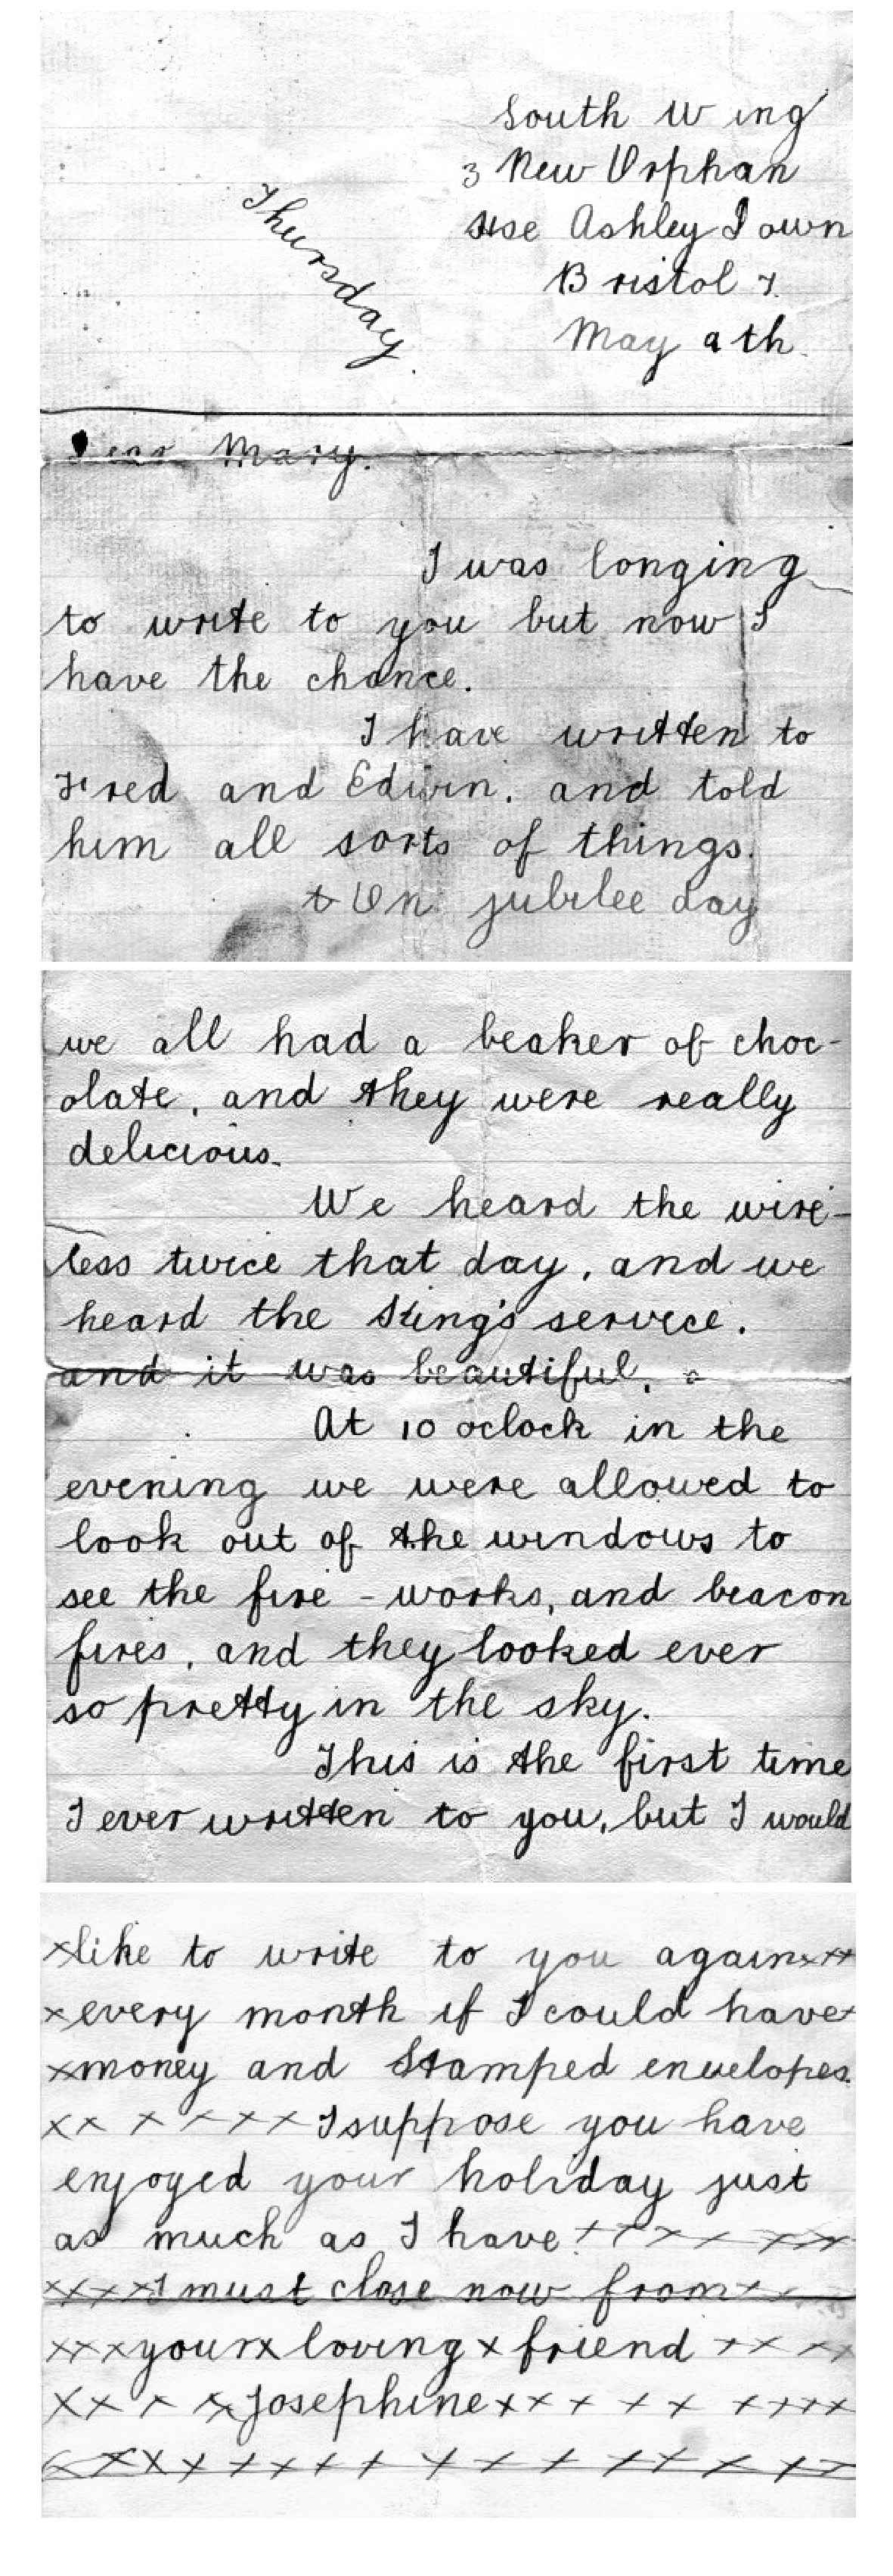 South Wing
3 New Orphan
Hse Ashley Down
Bristol 7.
May 9th.
Thursday.
Dear Mary.
I was longing
to write to you but now I
have the chance.
I have written to
Fred and Edwin. and told
him all sorts of things.
On jubilee day
we all had a beaker of choc-
olate, and they were really
delicious.
We heard the wire-
less twice that day, and we
heard the King's service.
and it was beautiful.
At 10 oclock in the
evening we were allowed to
look out of the windows to
see the fire-works, and beacon
fires, and they looked ever
so pretty in the sky.
This is the first time
I ever written to you, but I would
xlike to write to you againxxx
xevery month if I could havex
xmoney and Stamped envelopes.
xx x x x x I suppose you have
enjoyed your holiday just
as much as I have! x x x x x x
x x x x I must close now from x x
xxx yourx loving x friend x x x x
x x x x x Josephine x x x x x x x x x
x x x x x x x x x x x x x x x x x